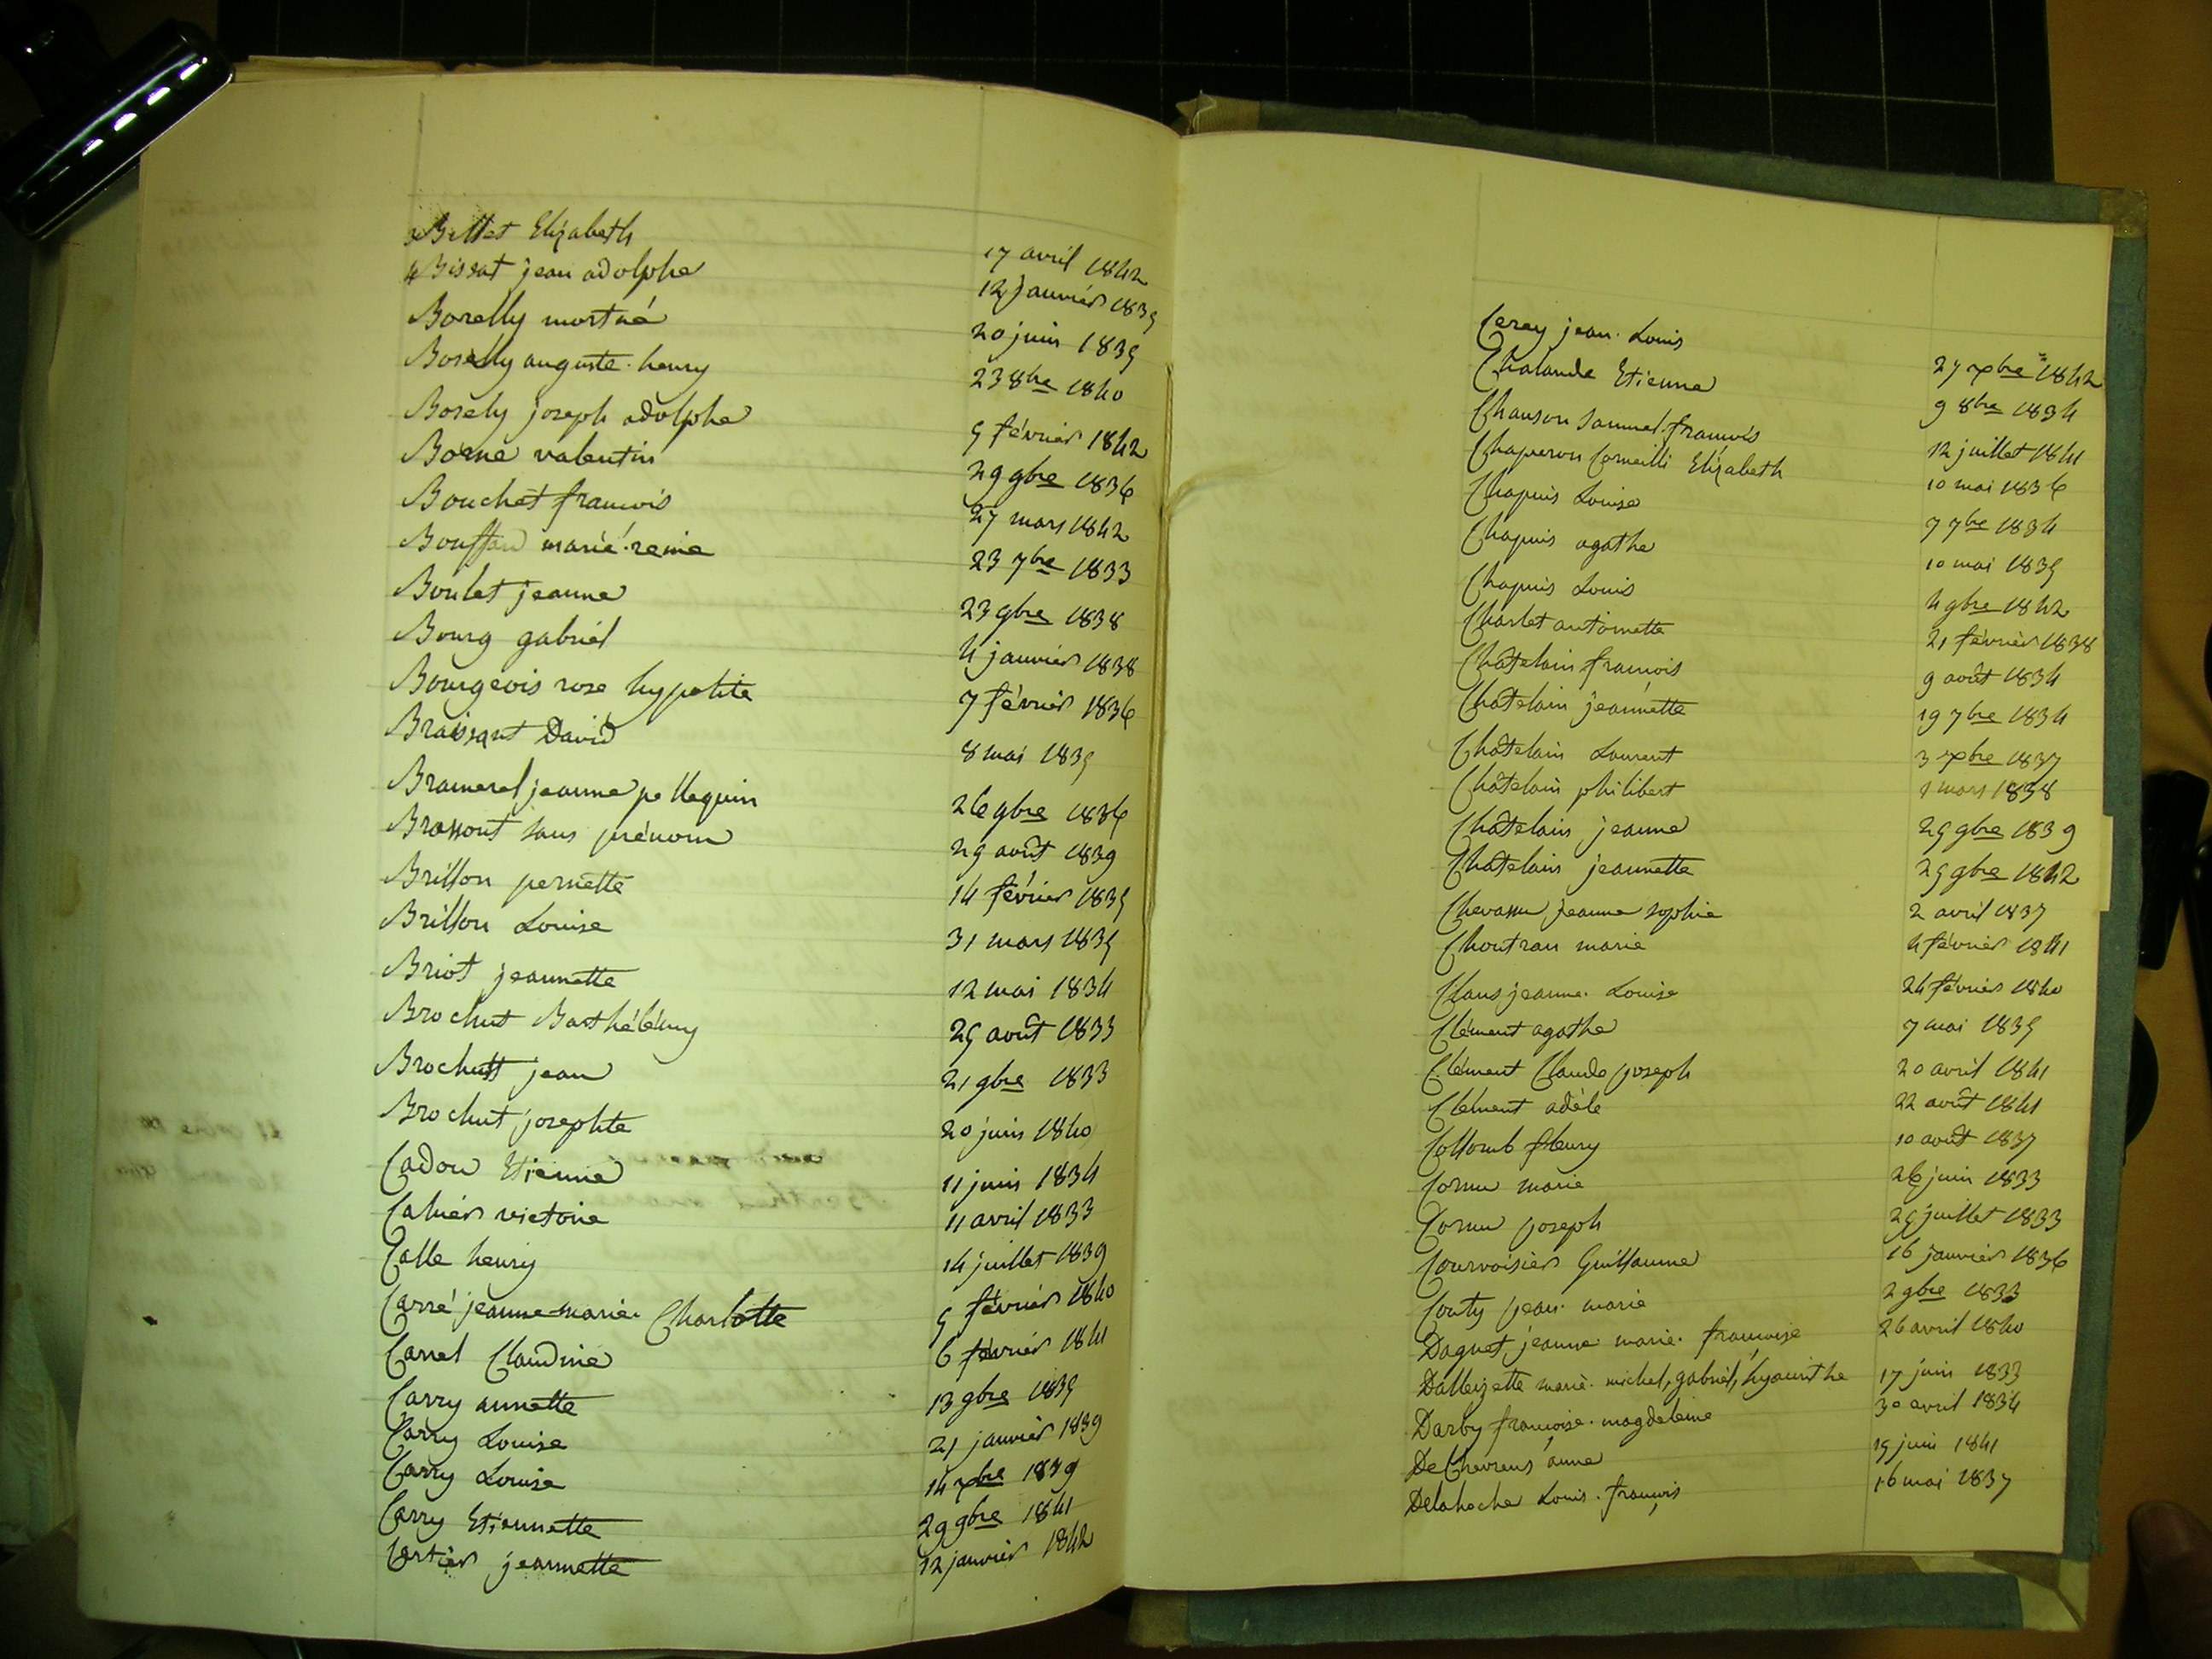 Billet Elizabeth 17 avril 1842
Bissat jean adolphe 12 janvier 1835
Borelly mortné 20 juin 1835
Borelly auguste. henry 23 8bre 1840
Borely joseph adolphe 5 février 1842
Borne valentin 29 9bre 1836
Bouchet francois 27 mars 1842
Bouffard marie. reine 23 7bre 1833
Boulet jeanne 23 9bre 1838
Bourg gabriel 4 janvier 1838
Bourgeois rose hypolite 7 février 1836
Braissant David 8 mai 1835
Bramerel jeanne pellequin 26 9bre 1836
Brassout sans prénom 29 août 1839
Brillon pernette 14 février 1835
Brillon Louise 31 mars 1835
Briot jeannette 12 mai 1834
Brochut Barthélémy 25 août 1833
Brochutt jean 21 9bre 1833
Brochut josephte 20 juin 1840
Cadou Etienne 11 juin 1834
Cahier victorie 11 avril 1833
Calle henry 14 juillet 1839
Carré jeanne-marie. Charlotte 5 février 1840
Carrel Claudine 6 février 1841
Carry annette 13 9bre 1835
Carry Louise 21 janvier 1839
Carry Louise 14 xbre 1839
Carry Etiennette 29 9bre 1841
Cartier jeannette 12 janvier 1842
Cerey jean. Louis 27 xbre 1842
Chalande Etienne 9 8bre 1834
Chanson Samuel. francois 12 juillet 1841
Chaperon Corneilli Elizabeth 10 mai 1836
Chapuis Louise 7 7bre 1834
Chapuis agathe 10 mai 1835
Chapuis Louis 4 9bre 1842
Charlet antoinette 21 février 1838
Châtelain francois 9 août 1834
Châtelain jeannette 19 7bre 1834
Châtelain Laurent 3 xbre 1837
Châtelain philibert 1 mars 1838
Châtelain jeanne 25 9bre 1839
Châtelain jeannette 25 9bre 1842
Chevassu jeanne sophie 2 avril 1837
Choutran marie 4 février 1841
Claus jeanne. Louise 24 février 1840
Clément agathe 7 mai 1835
Clément Claude joseph 20 avril 1841
Clément adèle 22 août 1841
Collomb fleury 10 août 1837
Cornu marie 26 juin 1833
Cornu joseph 25 juillet 1833
Courvoisier Guillaume 16 janvier 1836
Couty jean. marie 2 9bre 1833
Daguet jeanne marie. francoise 26 avril 1840
Dalleizette marie. michel, gabriel, hyacinthe 17 juin 1833
Darby françoise. magdeleine 30 avril 1834
DeChevrens anne 15 juin 1841
Delahoche Louis. françois 16 mai 1837